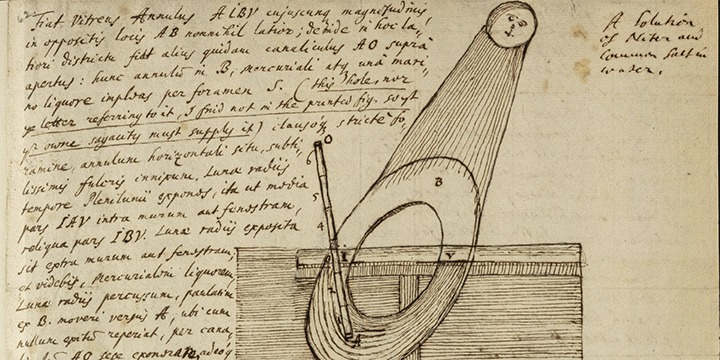 Fiat Vitreus Annulus AIBV cujuscunq magnitudinis,
in oppositis locis AB nonnihil latior; deinde in hoc la,
tiori districtu fiat alius quidam canaliculus AO supra
apertus: hunc annulu in B, mercuriali atq unà mari,
no liquore impleas per foramen S. (this hole, nor
ye letter referring to it, I find not in the printed fig. so yt
yr owne sagacity must supply it) clausoq stricte fo,
ramine, annulum horizontali situ, subti,
lissimis fulcris innixum, Lunæ radiis
tempore Plenilunii exponas, ita ut media
pars IAV intra murum aut fenestram,
reliqua pars IBV. Lunæ radiis exposita
sit extra murum aut fenestram;
et videbis, Mercurialem liquorem
Lunæ radiis percussum, paulatim
ex B. moveri versus A, ubi cum
nullum exitu reperiat, per cana,
AO sese adeoq
A Solution
of Niter and
Common Salt in
water.
O
6
5
4
B
I
V
A
C